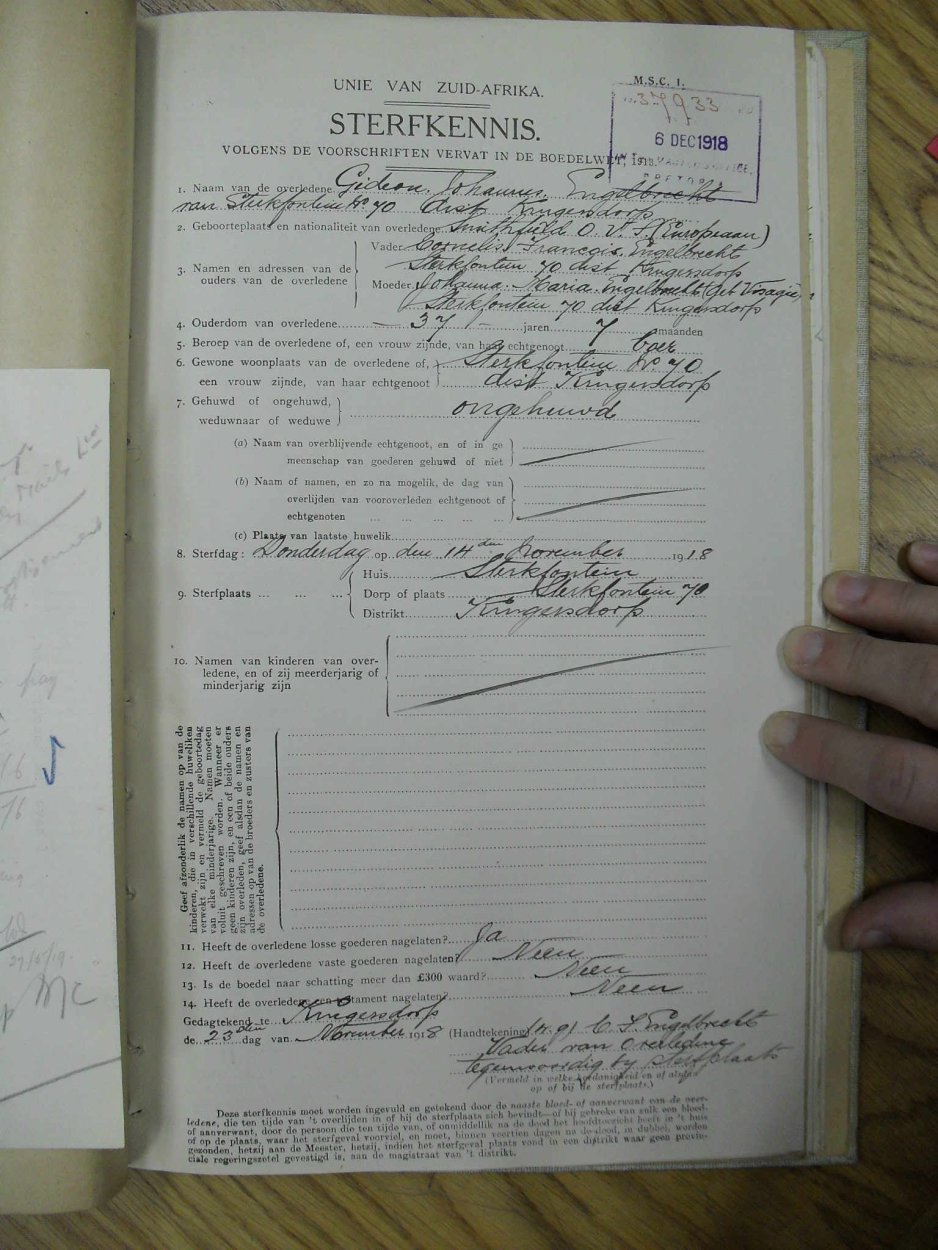 UNIE VAN ZUID-AFRIKA.
M.S.C. 1.
STERFKENNIS.
37933
6 DEC 1918
VOLGENS DE VOORSCHRIFTEN VERVAT IN DE BOEDELWET, 1913.
1. Naam van de overledene Gideon Johannes Engelbrecht
van Sterkfontein No 70 dist Krugersdorp
2. Geboorteplaats en nationaliteit van overledene Smithfield O.V.S. (Europeaan)
3. Namen en adressen van de ouders van de overledene
Vader Cornelis Francois Engelbrecht
Sterkfontein 70 dist Krugersdorp
Moeder Johanna Maria Engelbrecht (Geb Visagie)
Sterkfontein 70 dist Krugersdorp
4. Ouderdom van overledene 37 jaren 7 maanden
5. Beroep van de overledene of, een vrouw zijnde, van haar echtgenoot boer
6. Gewone woonplaats van de overledene of, Sterkfontein No 70
een vrouw zijnde, van haar echtgenoot dist Krugersdorp
7. Gehuwd of ongehuwd,
weduwnaar of weduwe ongehuwd
(a) Naam van overblijvende echtgenoot, en of in ge
meenschap van goederen gehuwd of niet
(b) Naam of namen, en zo na mogelik, de dag van
overlijden van vooroverleden echtgenoot of
echtgenoten ... ... ... ... ...
(c) Plaats van laatste huwelik
8. Sterfdag: Donderdag op den 14den November 1918
9. Sterfplaats ... ... ...
Huis Sterkfontein
Dorp of plaats Sterkfontein 70
Distrikt Krugersdorp
10. Namen van kinderen van over-
ledene, en of zij meerderjarig of
minderjarig zijn
Geef afzonderlik de namen op van de
kinderen, die in verschillende huweliken
verwekt zijn en vermeld de geboortedag
van elke minderjarige. Namen moeten
voluit geschreven worden. Wanneer er
geen kinderen zijn, en een of beide ouders
zijn overleden, geef alsdan de namen en
adressen op van de broeders en zusters van
de overledene.
11. Heeft de overledene losse goederen nagelaten? Ja
12. Heeft de overledene vaste goederen nagelaten? Neen
13. Is de boedel naar schatting meer dan £300 waard? Neen
14. Heeft de overledene een testament nagelaten? Neen
Gedagtekend te Krugersdorp
de 23sten dag van November 1918 (Handtekening) C. F. Engelbrecht
Vader van Overledene
tegenwoordig by sterfplaats
(Vermeld in welke hoedanigheid en of alsdan
op of bij de sterfplaats.)
Deze sterfkennis moet worden ingevuld en getekend door de naaste bloed- of aanverwant van de over-
ledene, die ten tijde van 't overlijden in of bij de sterfplaats zich bevindt—of bij gebreke van zulk een bloed-
of aanverwant, door de persoon die ten tijde van, of onmiddellik na de dood het hoofdtoezicht heeft in 't huis
of op de plaats, waar het sterfgeval voorviel, en moet, binnen veertien dagen na de dood, in dubbel, worden
gezonden, hetzij aan de Meester, hetzij, indien het sterfgeval plaats vond in een distrikt waar geen provin-
ciale regeringszetel gevestigd is, aan de magistraat van 't distrikt.